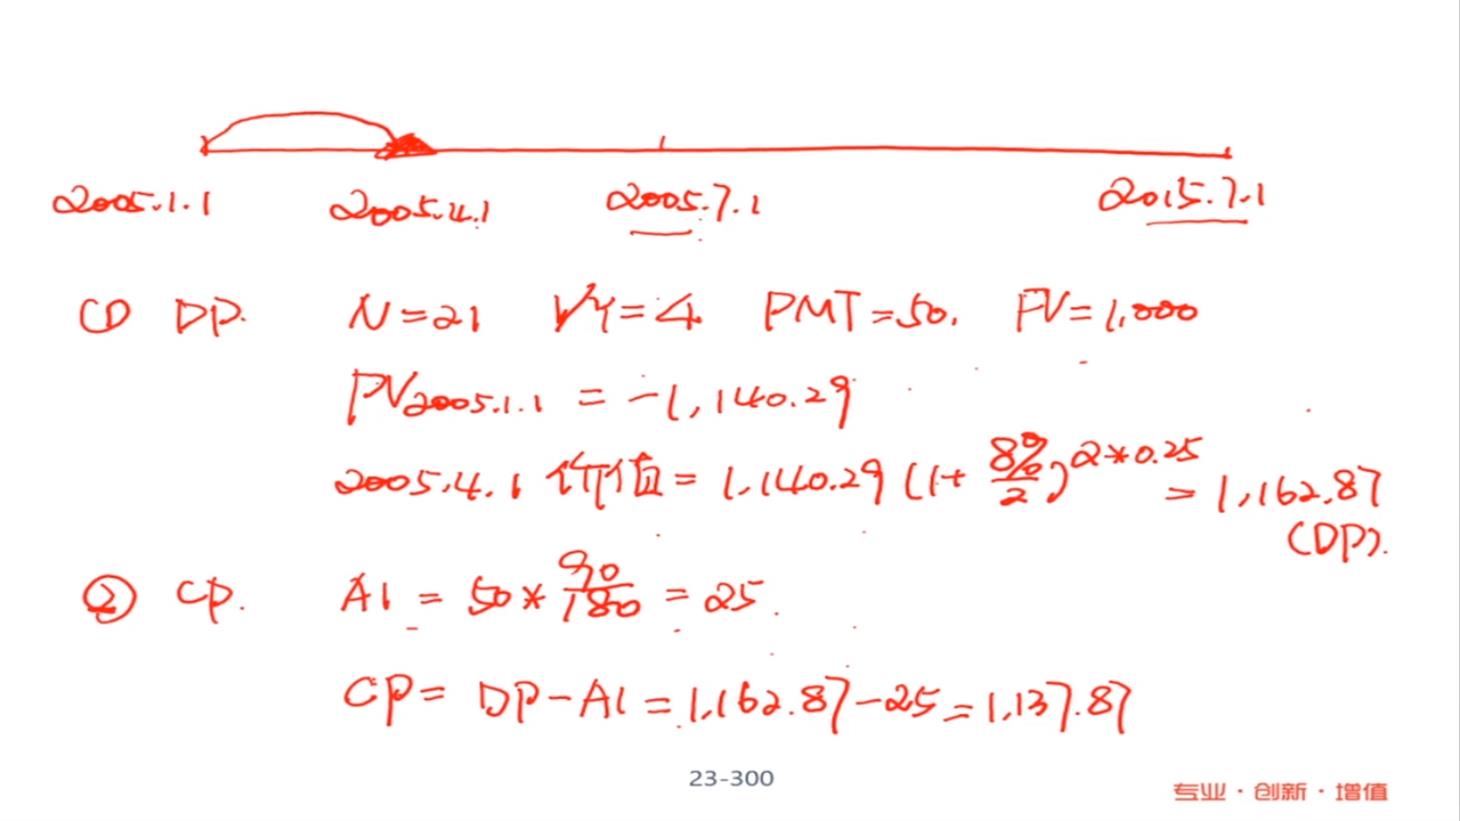 2005.1.1 2005.4.1 2005.7.1 2015.7.1
① DP. N=21 I/Y=4 PMT=50. FV=1,000
PV2005.1.1 = -1,140.29
2005.4.1 价值 = 1,140.29 (1+ 8%/2)^2*0.25 = 1,162.87
(DP).
② CP. AI = 50* 90/180 = 25.
CP= DP-AI = 1,162.87-25=1,137.87
23-300
专业·创新·增值